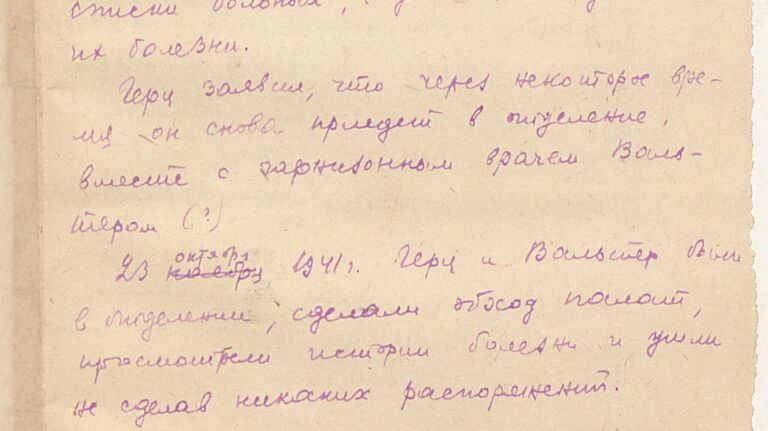 списки больных,
их болезни.
Герц заявил, что через некоторое вре-
мя он снова приедет в отделение,
вместе с гарнизонным врачем Валь-
тером (?)
октября
23 ноября 1941 г. Герц и Вальтер были
в отделении, сделали обход палат,
просмотрели истории болезни и ушли
не сделав никаких распоряжений.